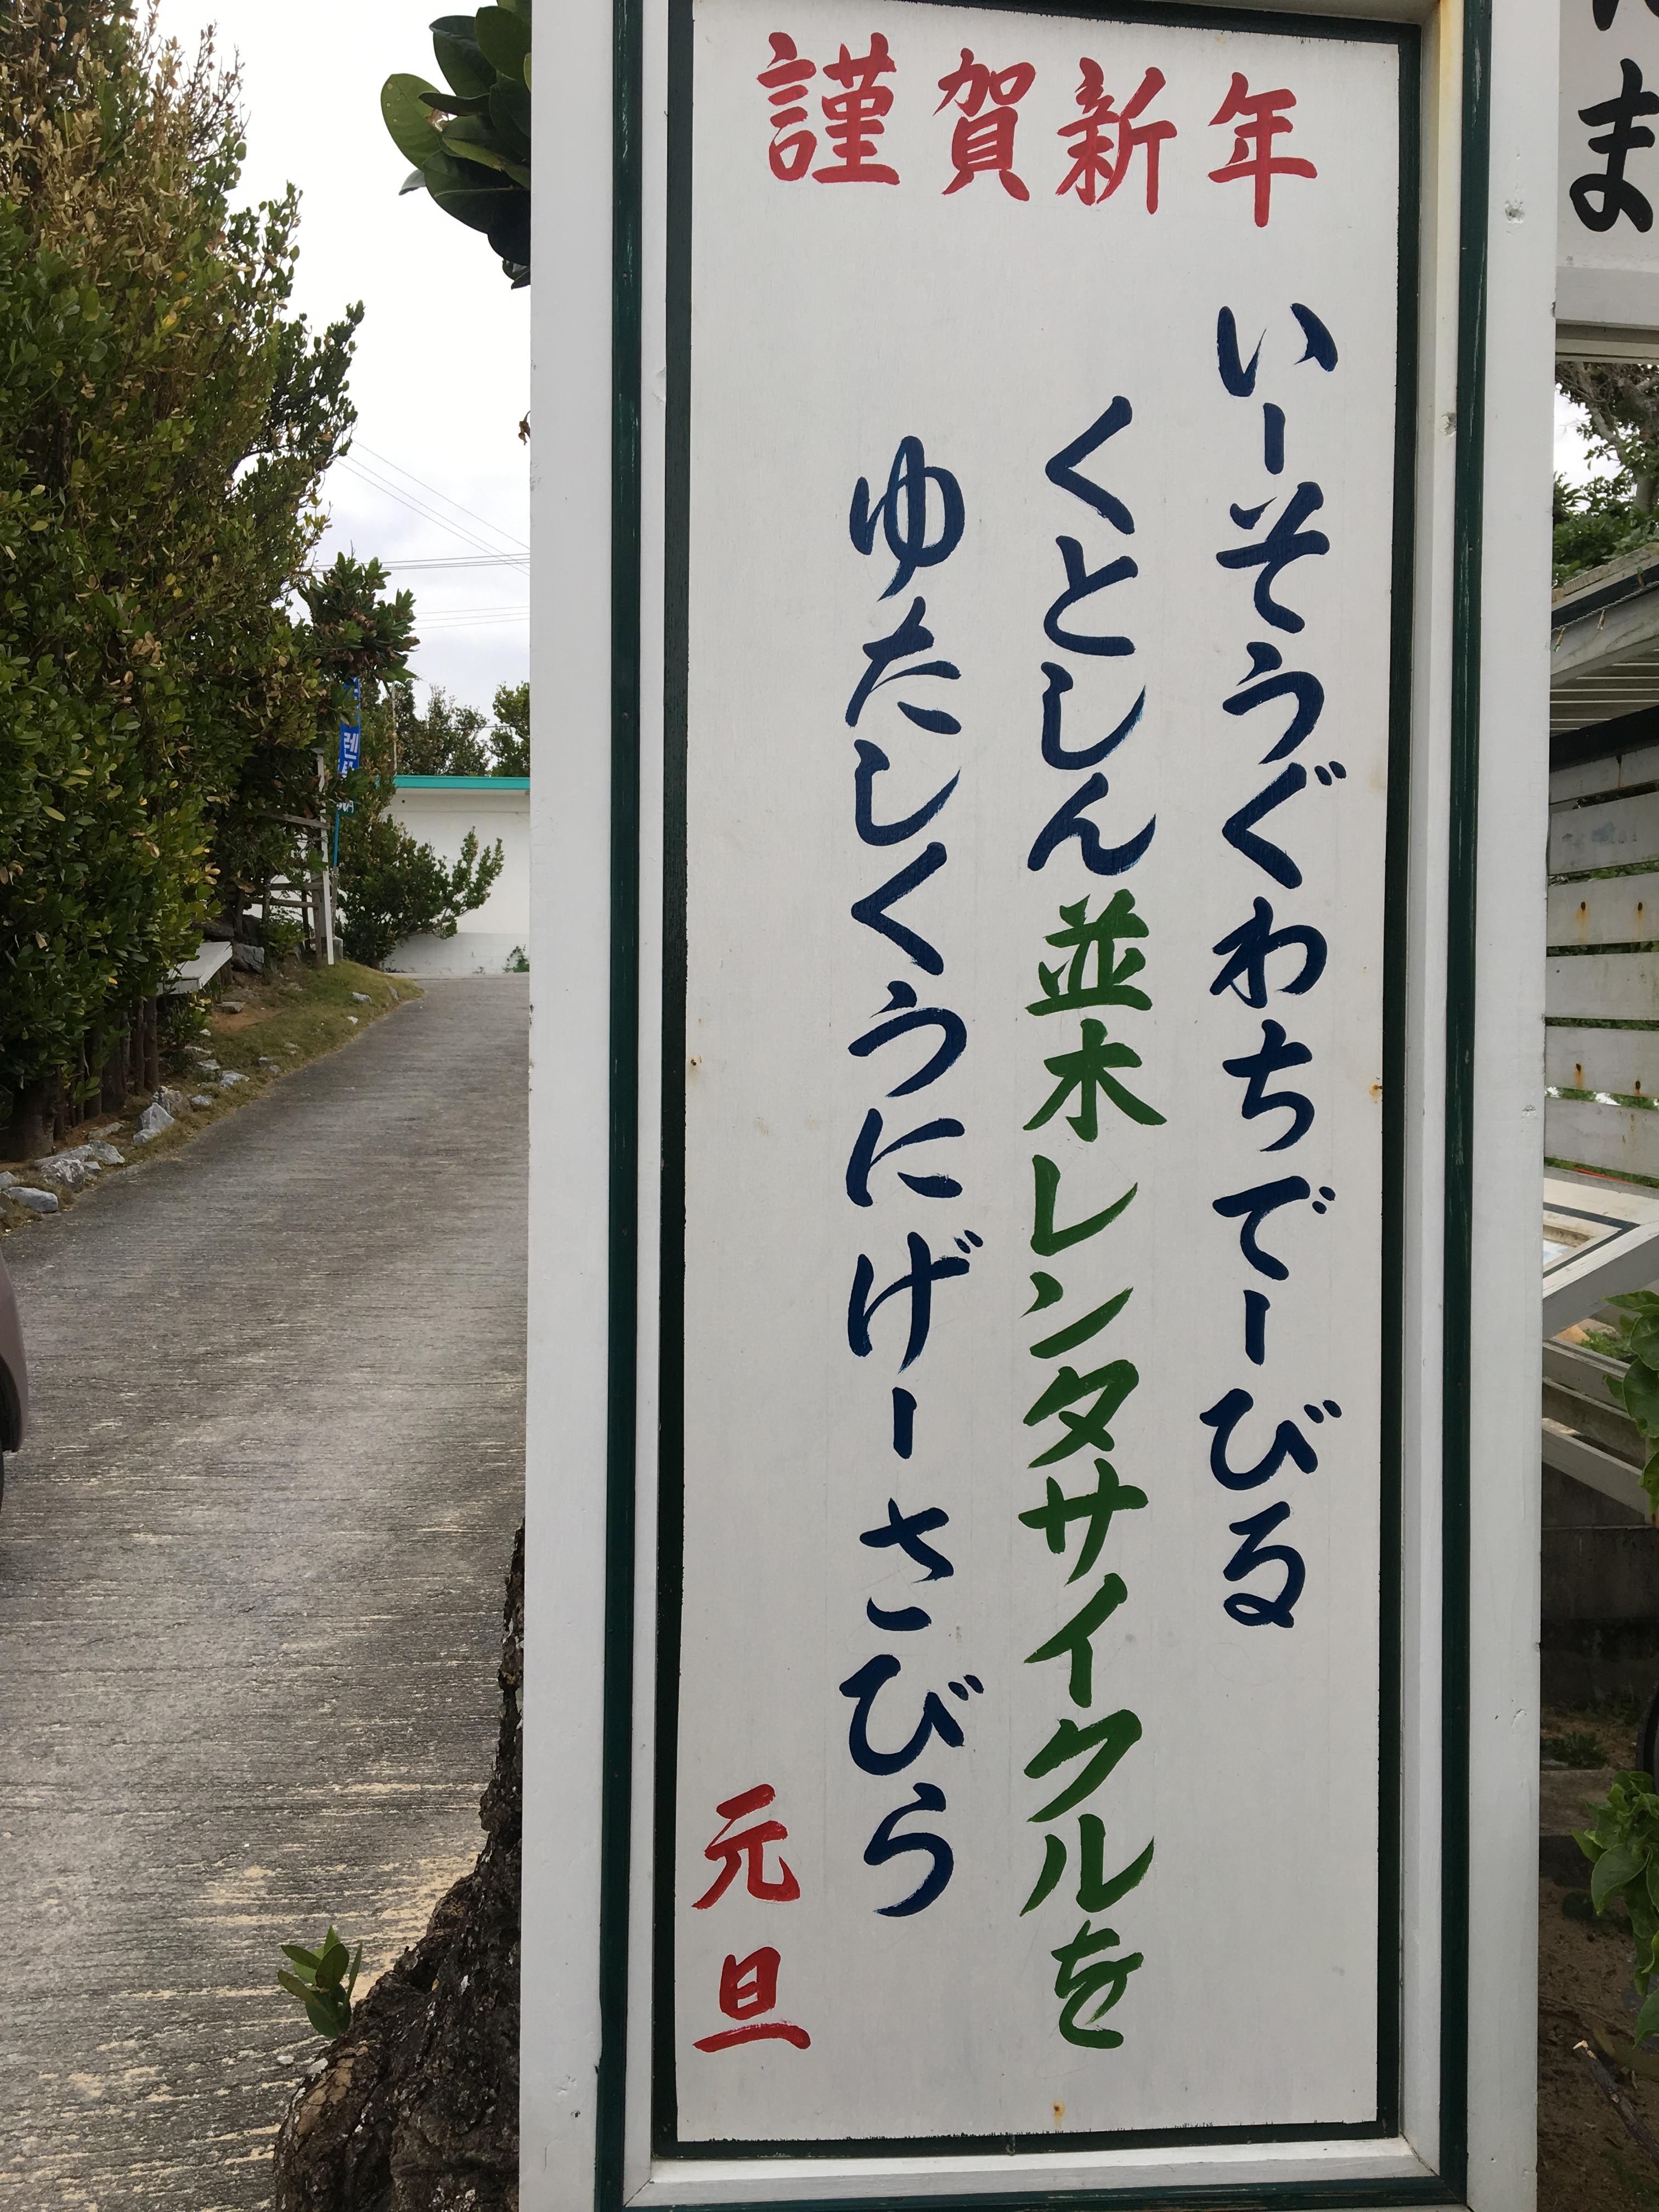 謹賀新年
いーそうぐわちでーびる
くとしん並木レンタサイクルを
ゆたしくうにげーさびら
元旦
ま